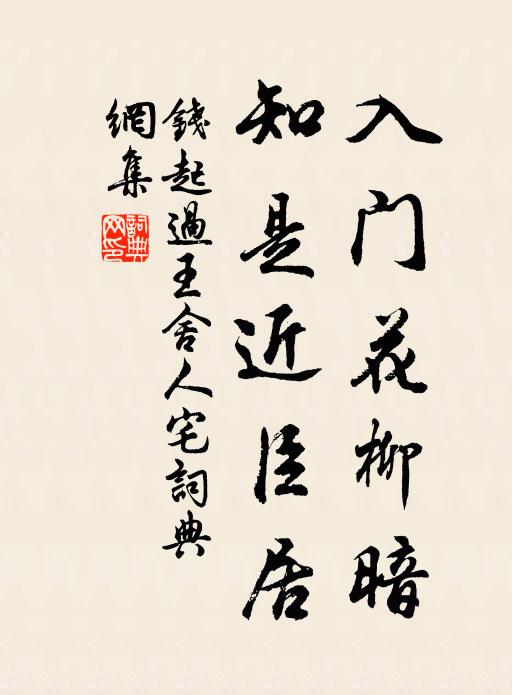 入门花柳暗
知是近臣居
錢起過王舍人宅詞典
網集
詞典
网印